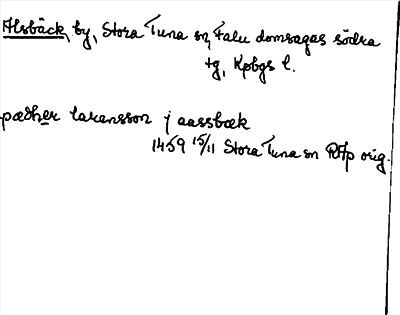 Alsbäck, by, Stora Tuna sn, Falu domsagas södra
tg, Kpbgs l.
pædher laransson j aassbæk
1459 15/11 Stora Tuna sn RAp orig.